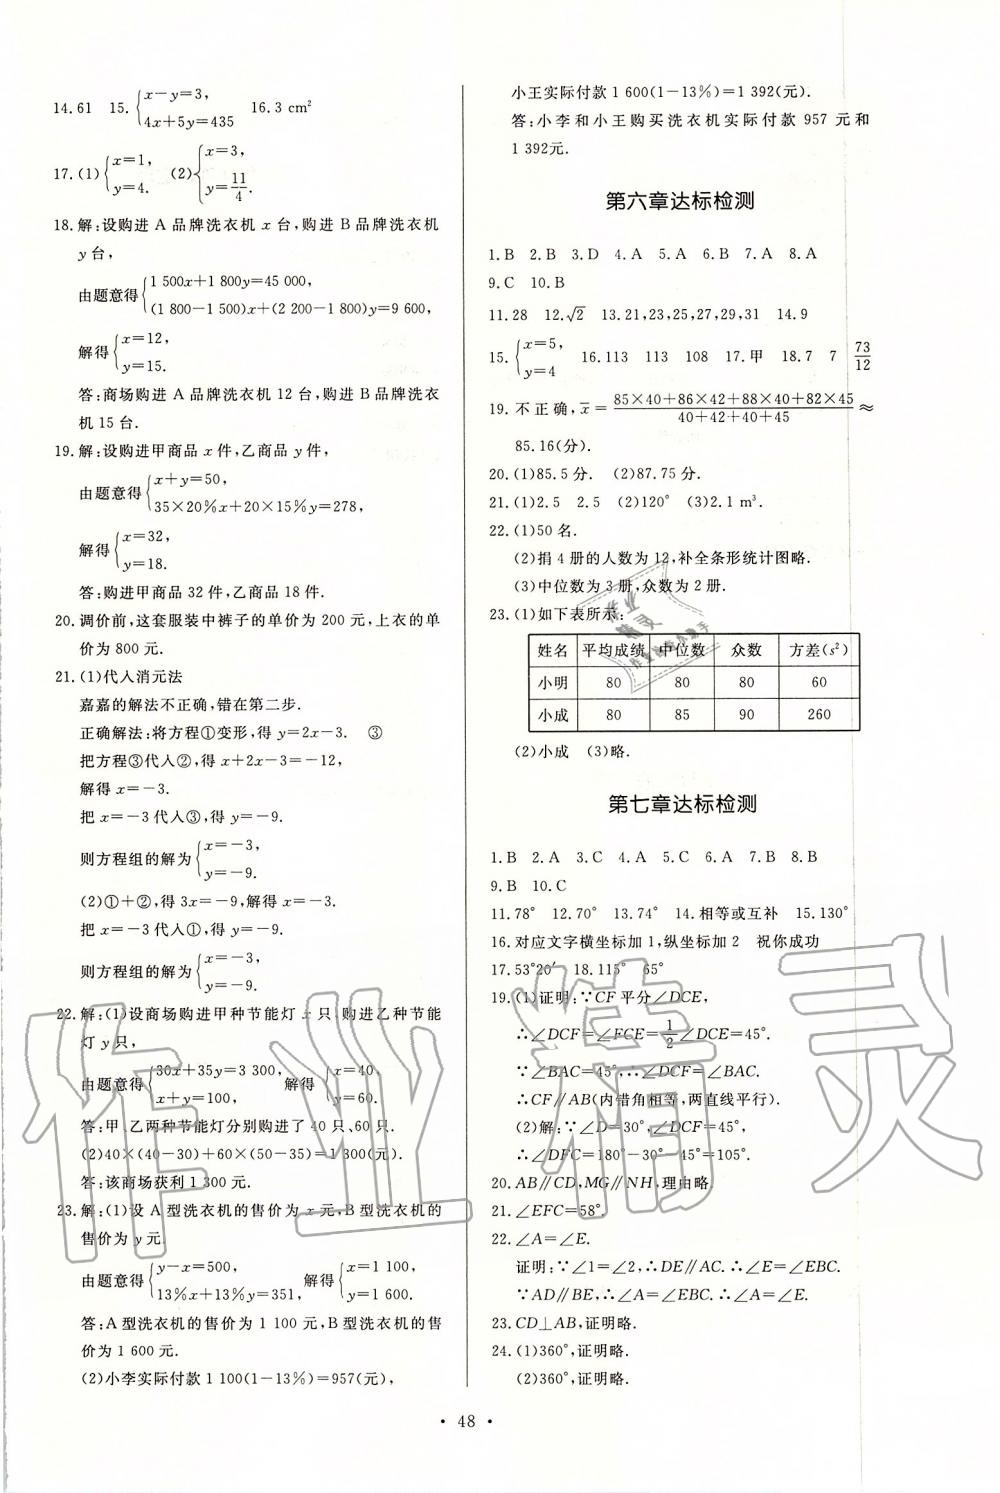 14.61　15.{x－y＝3,
4x＋5y＝435　16.3 cm²
17.(1){x＝1,
y＝4.　(2){x＝3,
y＝11/4.
18.解:设购进 A 品牌洗衣机 x 台,购进 B 品牌洗衣机
y 台,
由题意得{1 500x＋1 800y＝45 000,
(1 800－1 500)x＋(2 200－1 800)y＝9 600,
解得{x＝12,
y＝15.
答:商场购进 A 品牌洗衣机 12 台,购进 B 品牌洗衣
机 15 台.
19.解:设购进甲商品 x 件,乙商品 y 件,
由题意得{x＋y＝50,
35×20％x＋20×15％y＝278,
解得{x＝32,
y＝18.
答:购进甲商品 32 件,乙商品 18 件.
20.调价前,这套服装中裤子的单价为 200 元,上衣的单
价为 800 元.
21.(1)代入消元法
嘉嘉的解法不正确,错在第二步.
正确解法:将方程①变形,得 y＝2x－3.　③
把方程③代入②,得 x＋2x－3＝－12,
解得 x＝－3.
把 x＝－3 代入③,得 y＝－9.
则方程组的解为{x＝－3,
y＝－9.
(2)①＋②,得 3x＝－9,解得 x＝－3,
把 x＝－3 代入①,得 y＝－9.
则方程组的解为{x＝－3,
y＝－9.
22.解:(1)设商场购进甲种节能灯 x 只,购进乙种节能
灯 y 只,
由题意得{30x＋35y＝3 300,
x＋y＝100,　解得{x＝40,
y＝60.
答:甲、乙两种节能灯分别购进了 40 只、60 只.
(2)40×(40－30)＋60×(50－35)＝1 300(元).
答:该商场获利 1 300 元.
23.解:(1)设 A 型洗衣机的售价为 x 元,B 型洗衣机的
售价为 y 元.
由题意得{y－x＝500,
13％x＋13％y＝351,　解得{x＝1 100,
y＝1 600.
答:A 型洗衣机的售价为 1 100 元,B 型洗衣机的售
价为 1 600 元.
(2)小李实际付款 1 100(1－13％)＝957(元),
小王实际付款 1 600(1－13％)＝1 392(元).
答:小李和小王购买洗衣机实际付款 957 元和
1 392元.
第六章达标检测
1.B　2.B　3.D　4.A　5.A　6.B　7.A　8.A
9.C　10.B
11.28　12.√2　13.21,23,25,27,29,31　14.9
15.{x＝5,
y＝4　16.113　113　108　17.甲　18.7　7　73/12
19.不正确,x̄＝(85×40＋86×42＋88×40＋82×45)/(40＋42＋40＋45)≈
85.16(分).
20.(1)85.5 分.　(2)87.75 分.
21.(1)2.5　2.5　(2)120°　(3)2.1 m³.
22.(1)50 名.
(2)捐 4 册的人数为 12,补全条形统计图略.
(3)中位数为 3 册,众数为 2 册.
23.(1)如下表所示:
姓名　平均成绩　中位数　众数　方差(s²)
小明　80　80　80　60
小成　80　85　90　260
(2)小成　(3)略.
第七章达标检测
1.B　2.A　3.C　4.A　5.C　6.A　7.B　8.B
9.B　10.C
11.78°　12.70°　13.74°　14.相等或互补　15.130°
16.对应文字横坐标加 1,纵坐标加 2　祝你成功
17.53°20′　18.115°　65°
19.(1)证明:∵CF 平分∠DCE,
∴∠DCF＝∠FCE＝1/2∠DCE＝45°.
∵∠BAC＝45°,∴∠DCF＝∠BAC.
∴CF∥AB(内错角相等,两直线平行).
(2)解:∵∠D＝30°,∠DCF＝45°,
∴∠DFC＝180°－30°－45°＝105°.
20.AB∥CD,MG∥NH,理由略
21.∠EFC＝58°.
22.∠A＝∠E.
证明:∵∠1＝∠2,∴DE∥AC.∴∠E＝∠EBC.
∵AD∥BE,∴∠A＝∠EBC.∴∠A＝∠E.
23.CD⊥AB,证明略.
24.(1)360°,证明略.
(2)360°,证明略.
• 48 •
作业精灵